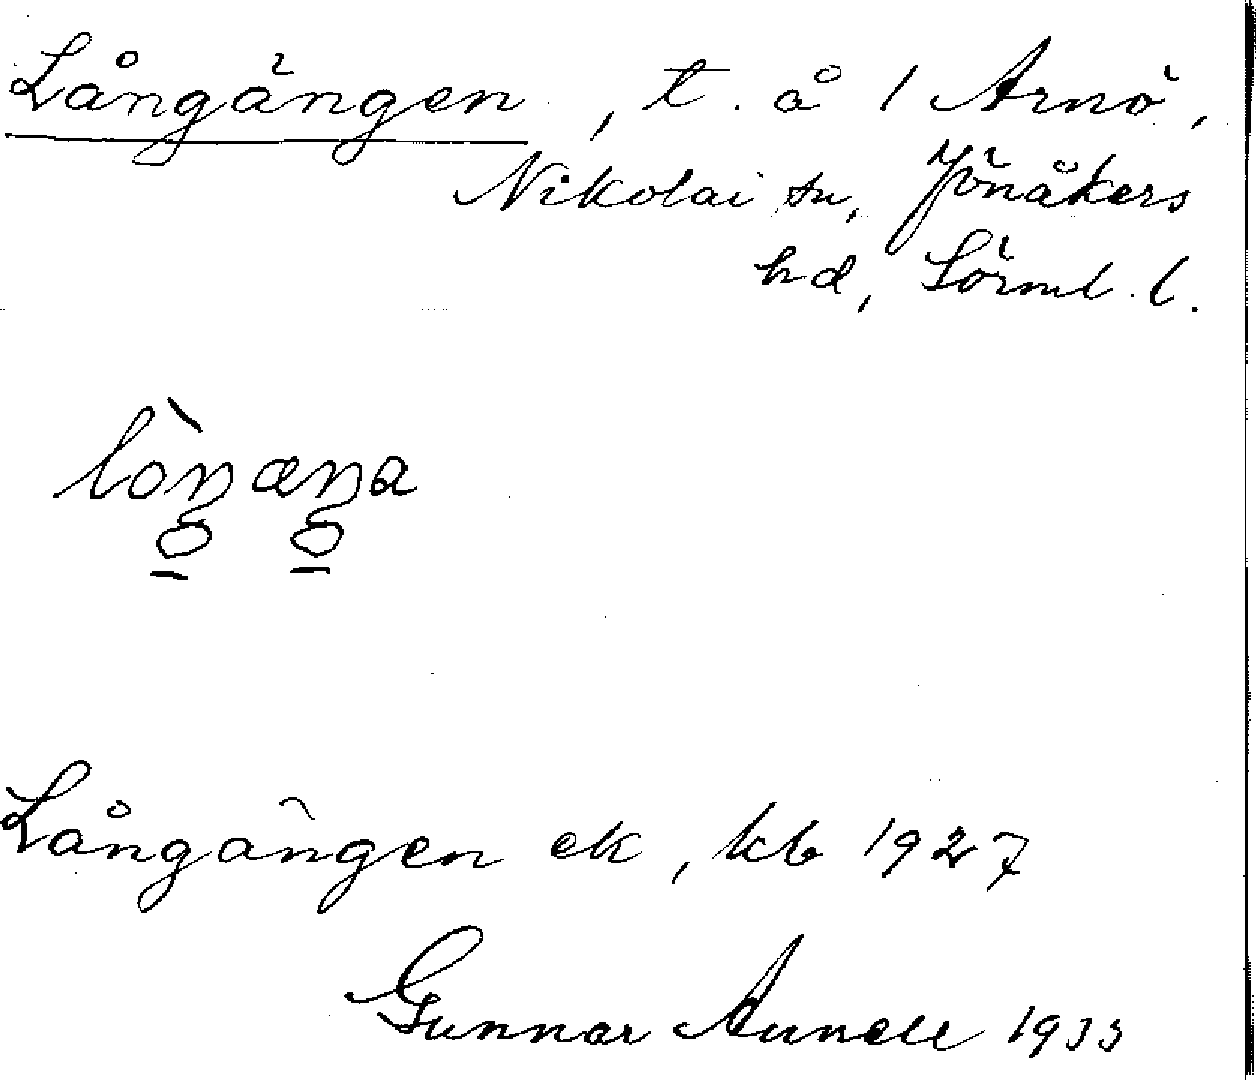 Långängen, t. å 1 Arnö,
Nikolai sn, Jönåkers
hd, Sörml. l.
lòŋæŋa
Långängen ek, kb 1927
Gunnar 1933